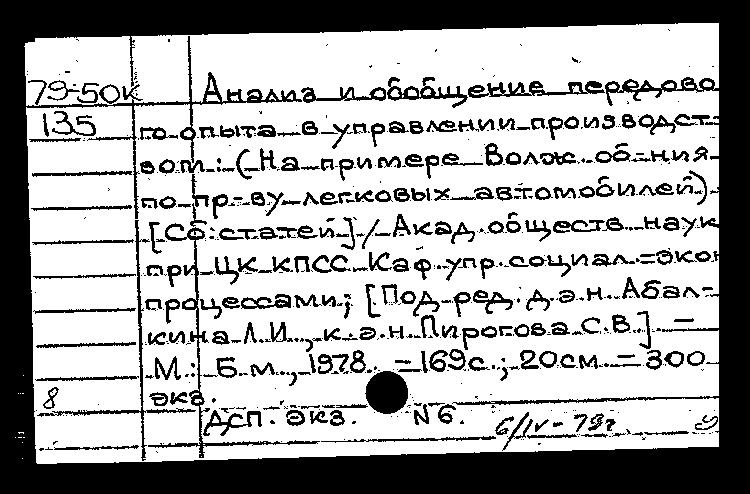 79-50к Анализ и обобщение передово
135 го опыта в управлении производст-
вом: (На примере Волж. об-ния
по пр-ву легковых автомобилей)
[Сб. статей] / Акад. обществ наук
при ЦК КПСС. Каф. упр. социал.-экон
процессами; [Под ред. д.э.н. Абал-
кина Л.И., к.э.н. Пирогова С.В.] -
М.: Б.м., 1978. - 169с.; 20см - 300
8 экз.
ДСП. экз. N6. 6/IV-79г.